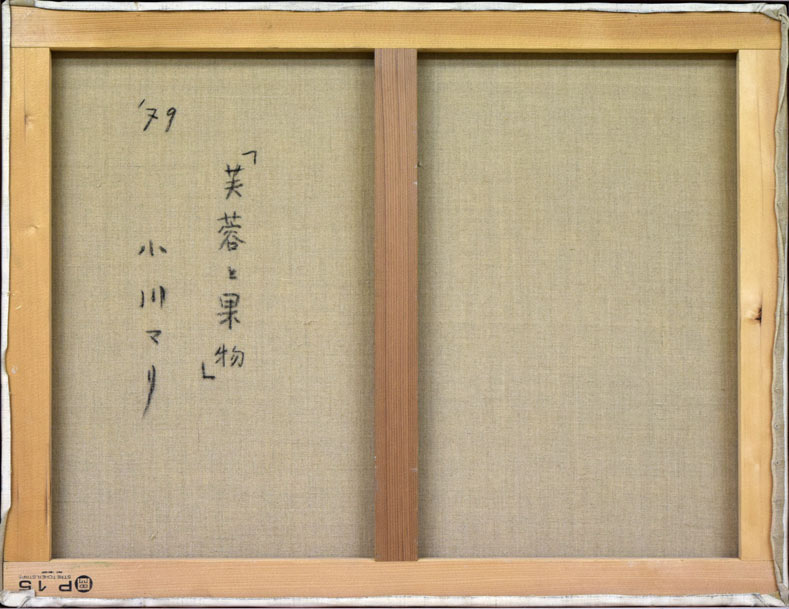 「芙蓉と果物」
'79
小川マリ
P 15
STRETCHER STRIP